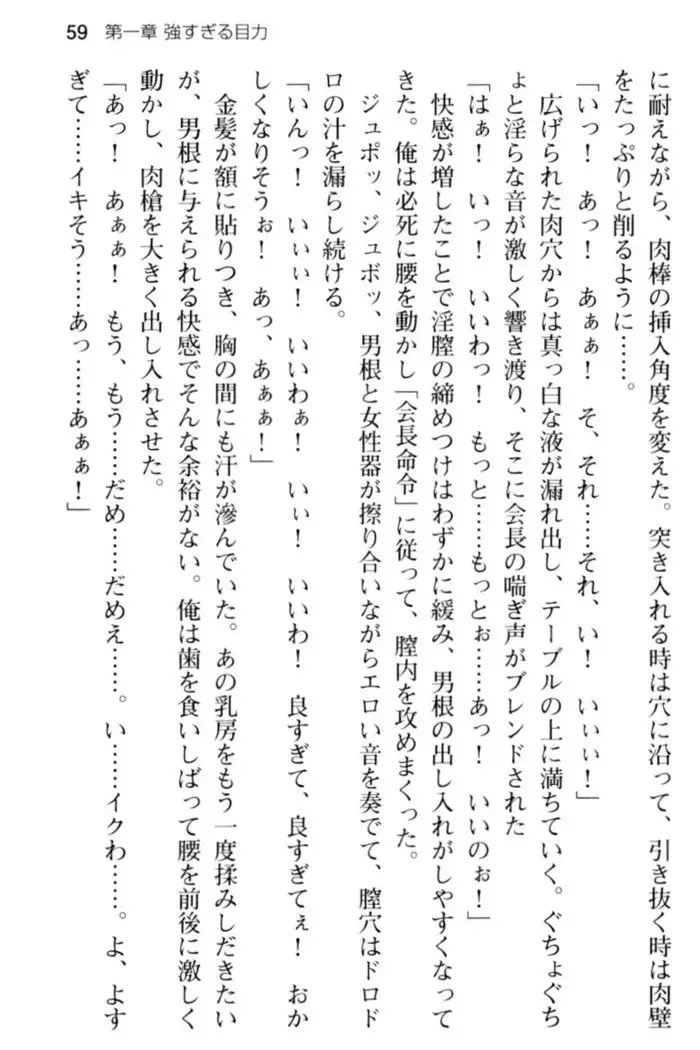 59 第一章 強すぎる目力
に耐えながら、肉棒の挿入角度を変えた。突き入れる時は穴に沿って、引き抜く時は肉壁
をたっぷりと削るように……。
「いっ！　あっ！　あぁぁ！　そ、それ……それ、い！　いぃぃ！」
広げられた肉穴からは真っ白な液が漏れ出し、テーブルの上に満ちていく。ぐちょぐち
ょと淫らな音が激しく響き渡り、そこに会長の喘ぎ声がブレンドされた
「はぁ！　いっ！　いいわっ！　もっと……もっとぉ……あっ！　いいのぉ！」
快感が増したことで淫膣の締めつけはわずかに緩み、男根の出し入れがしやすくなって
きた。俺は必死に腰を動かし「会長命令」に従って、膣内を攻めまくった。
ジュポッ、ジュボッ、男根と女性器が擦り合いながらエロい音を奏でて、膣穴はドロド
ロの汁を漏らし続ける。
「いんっ！　いぃぃ！　いいわぁ！　いぃ！　いいわ！　良すぎて、良すぎてぇ！　おか
しくなりそうぉ！　あっ、あぁぁ！」
金髪が額に貼りつき、胸の間にも汗が滲んでいた。あの乳房をもう一度揉みしだきたい
が、男根に与えられる快感でそんな余裕がない。俺は歯を食いしばって腰を前後に激しく
動かし、肉槍を大きく出し入れさせた。
「あっ！　あぁぁ！　もう、もう……だめ……だめえ……。い……イクわ……。よ、よす
ぎて……イキそう……あっ……あぁぁ！」